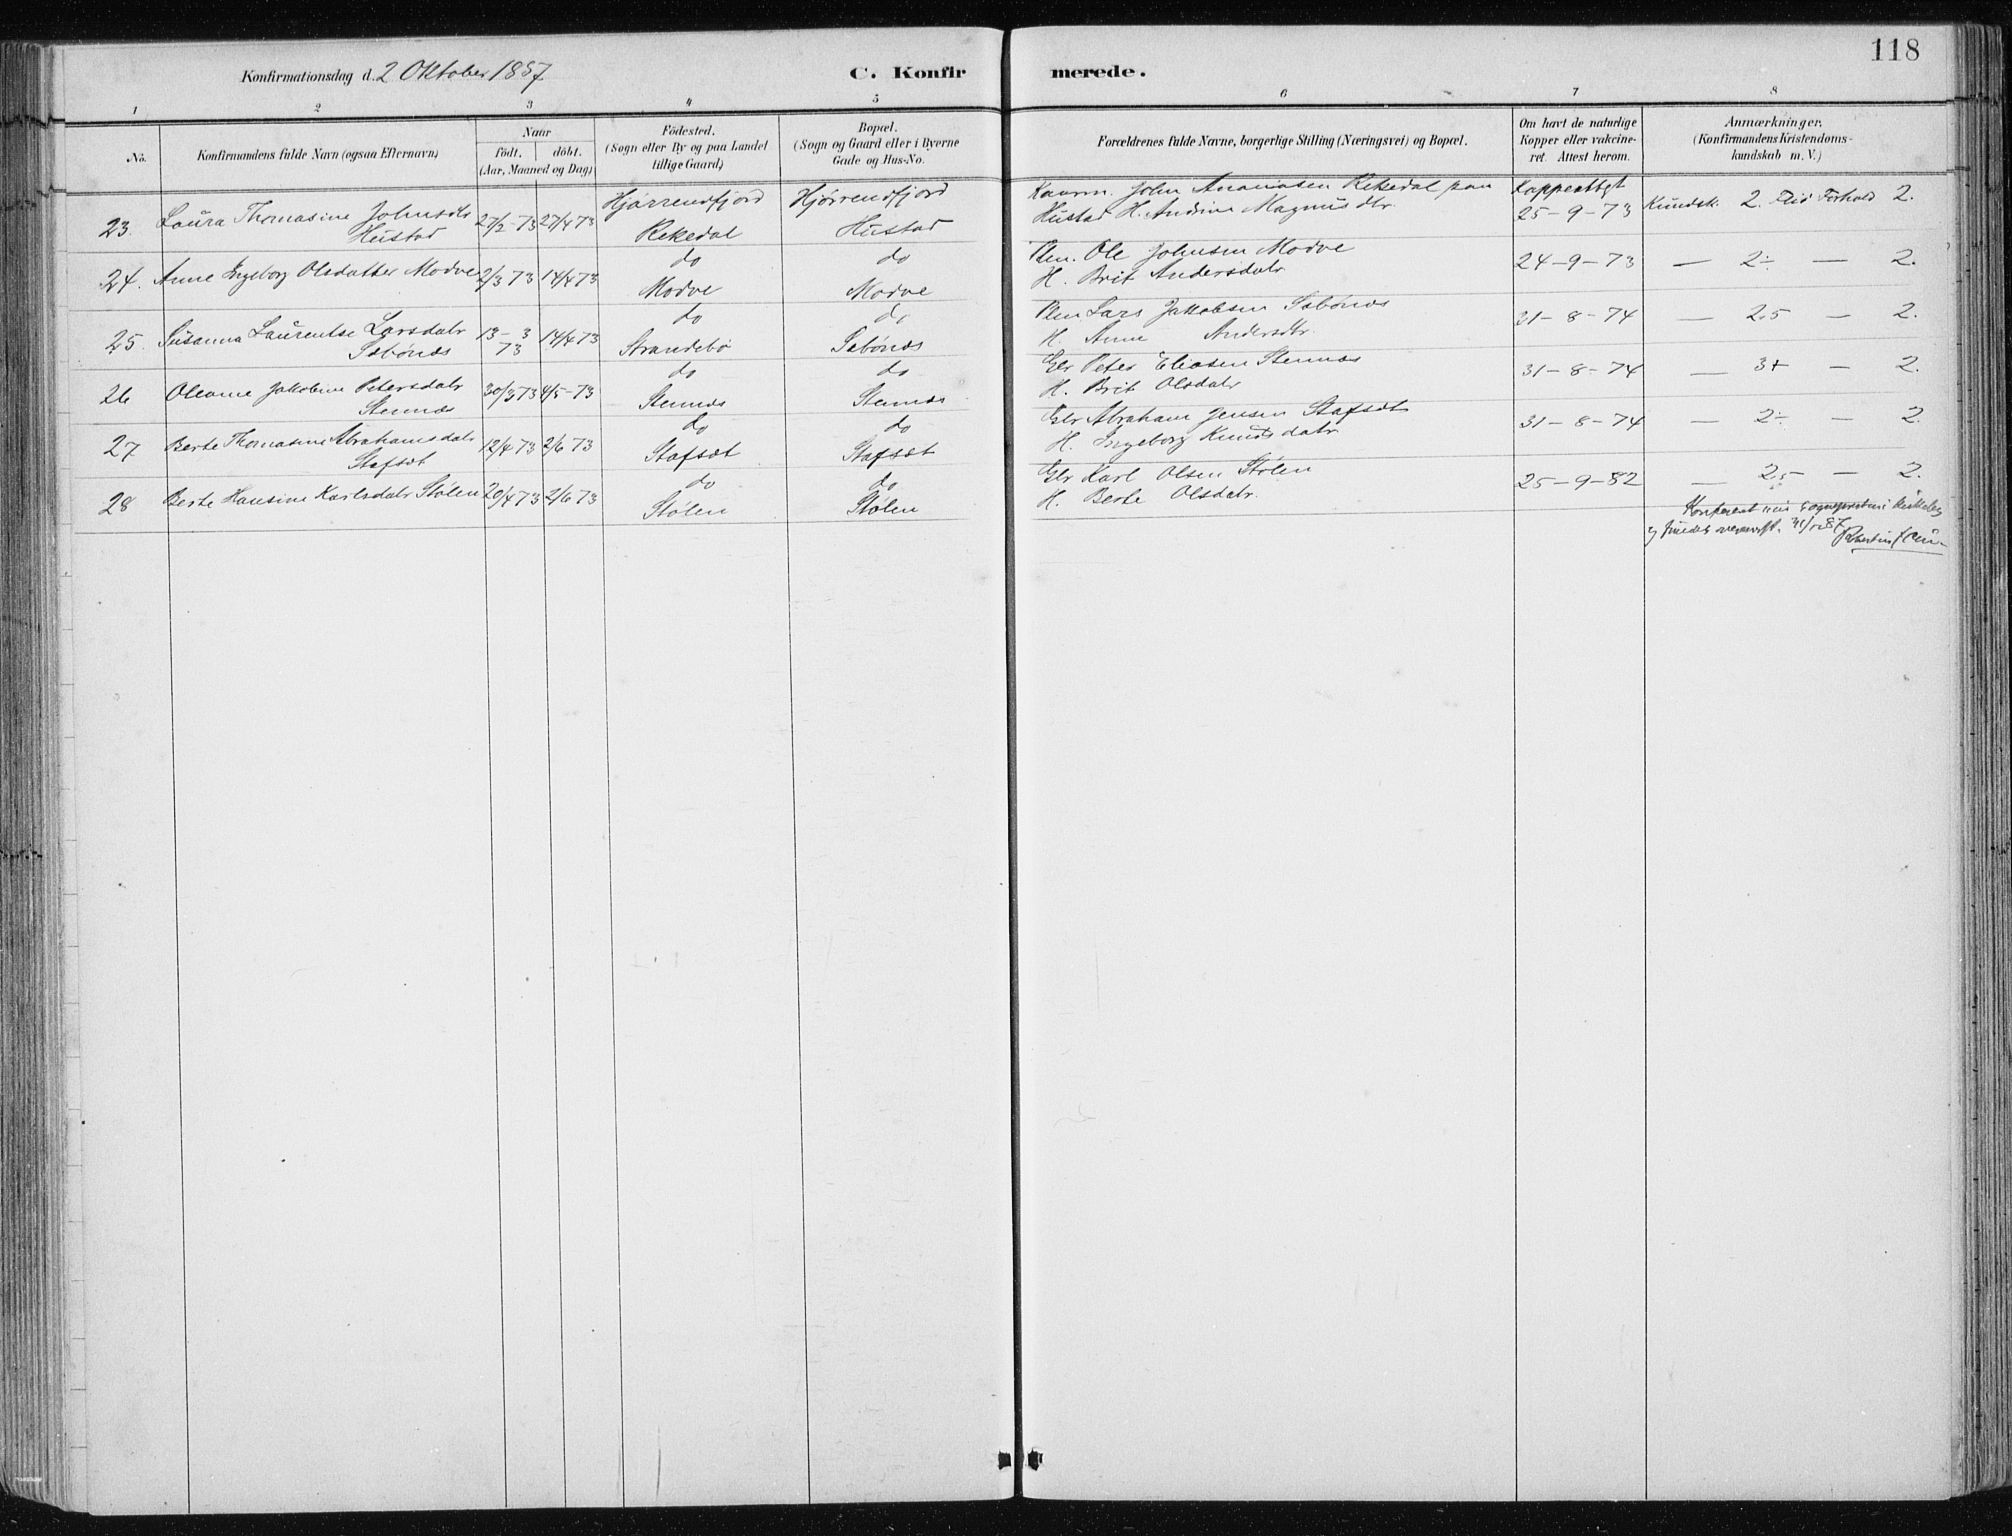 118
Konfirmationsdag d. 2 Oktober 1887
C. Konfirmerede.
1 2 3 4 5 6 7 8
No.
Konfirmandens fulde Navn (ogsaa Efternavn)
Naar
födt. döbt.
(Aar, Maaned og Dag)
Födested.
(Sogn eller By og paa Landet
tillige Gaard)
Bopæl.
(Sogn og Gaard eller i Byerne
Gade og Hus-No.
Forældrenes fulde Navne, borgerlige Stilling (Næringsvei) og Bopæl.
Om havt de naturlige
Kopper eller vakcine-
ret. Attest herom.
Anmærkninger.
(Konfirmandens Kristendoms-
kundskab m. V.)
23. Laura Thomasine Johnsdtr
Hustad
27/2-73 27/4 73
Hjørrendfjord
Rekedal
Hjørrendfjord
Hustad
John Ananiasen Rekedal paa
Hustad H. Andrine Magnusdtr.
Koppeattest
25-9-73
Kundsk. 2. Flid Forhold 2.
24. Anne Ingeborg Olsdatter Modve
2/3 73 14/4 73
do
Modve
do
Modve
Ole Johnsen Modve
H. Brit Andersdatr
24-9-73
— 2÷ — 2.
25. Susanna Laurentse Larsdatr
Sæbönes
13-3
73
14/4 73
do
Strandebö
do
Sæbönes
Lars Jakobsen Sæbönes
H. Anne Andersdtr.
31-8-74
— 2,5 — 2.
26 Oleane Jakobine Petersdatr
Stennes
30/3 73 4/5-73
do
Stennes
do
Stennes
Gbr Peter Eliasen Stennes
H. Brit Olsdatr
31-8-74
— 3+ — 2.
27 Berte Thomasine Abrahamsdatr
Stafsæt
12/4 73 2/6 73
do
Stafsæt
do
Stafsæt
Gbr Abraham Jensen Stafsæt
H. Ingeborg Knudsdatr
31-8-74
— 2÷ — 2.
28 Berte Hansine Karlsdatr Stølen
20/4 73 2/6 73
do
Stølen
do
Stølen
Gbr Karl Olsen Stølen
H. Berte Olsdatr.
25-9-82
— 2,5 — 2.
Konfereret med Sognepræstens
og